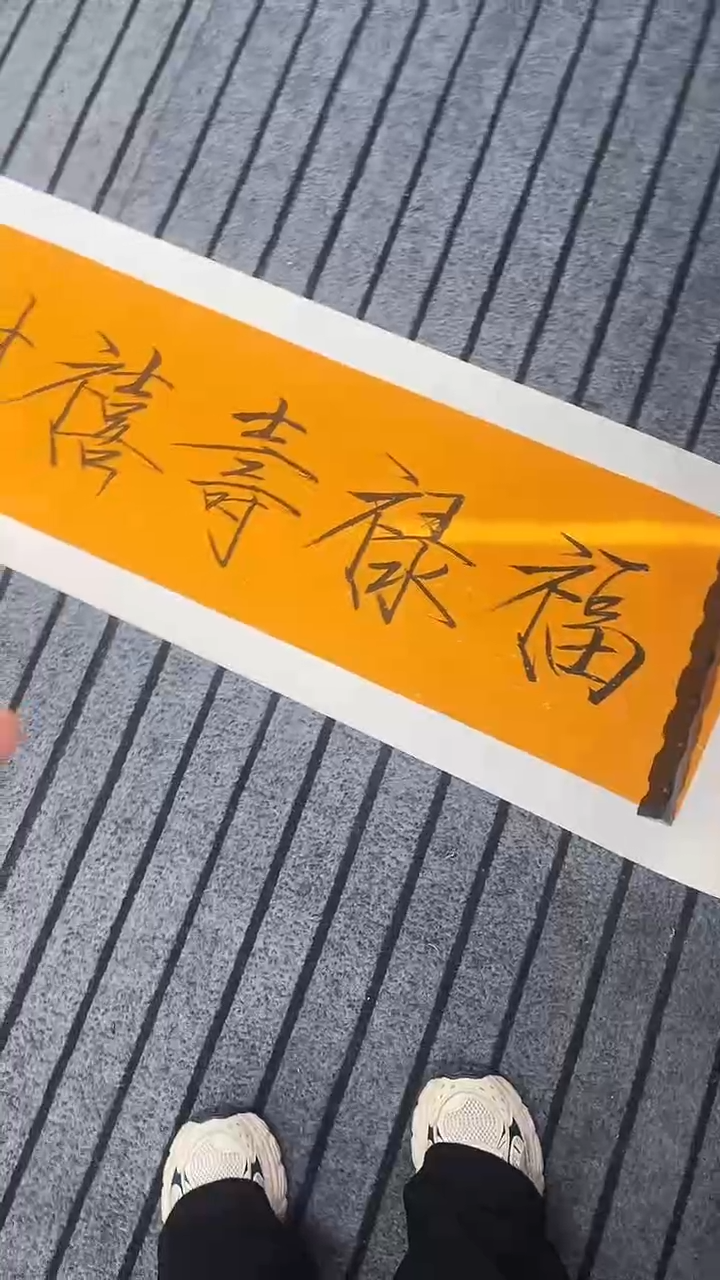 福禄寿禧